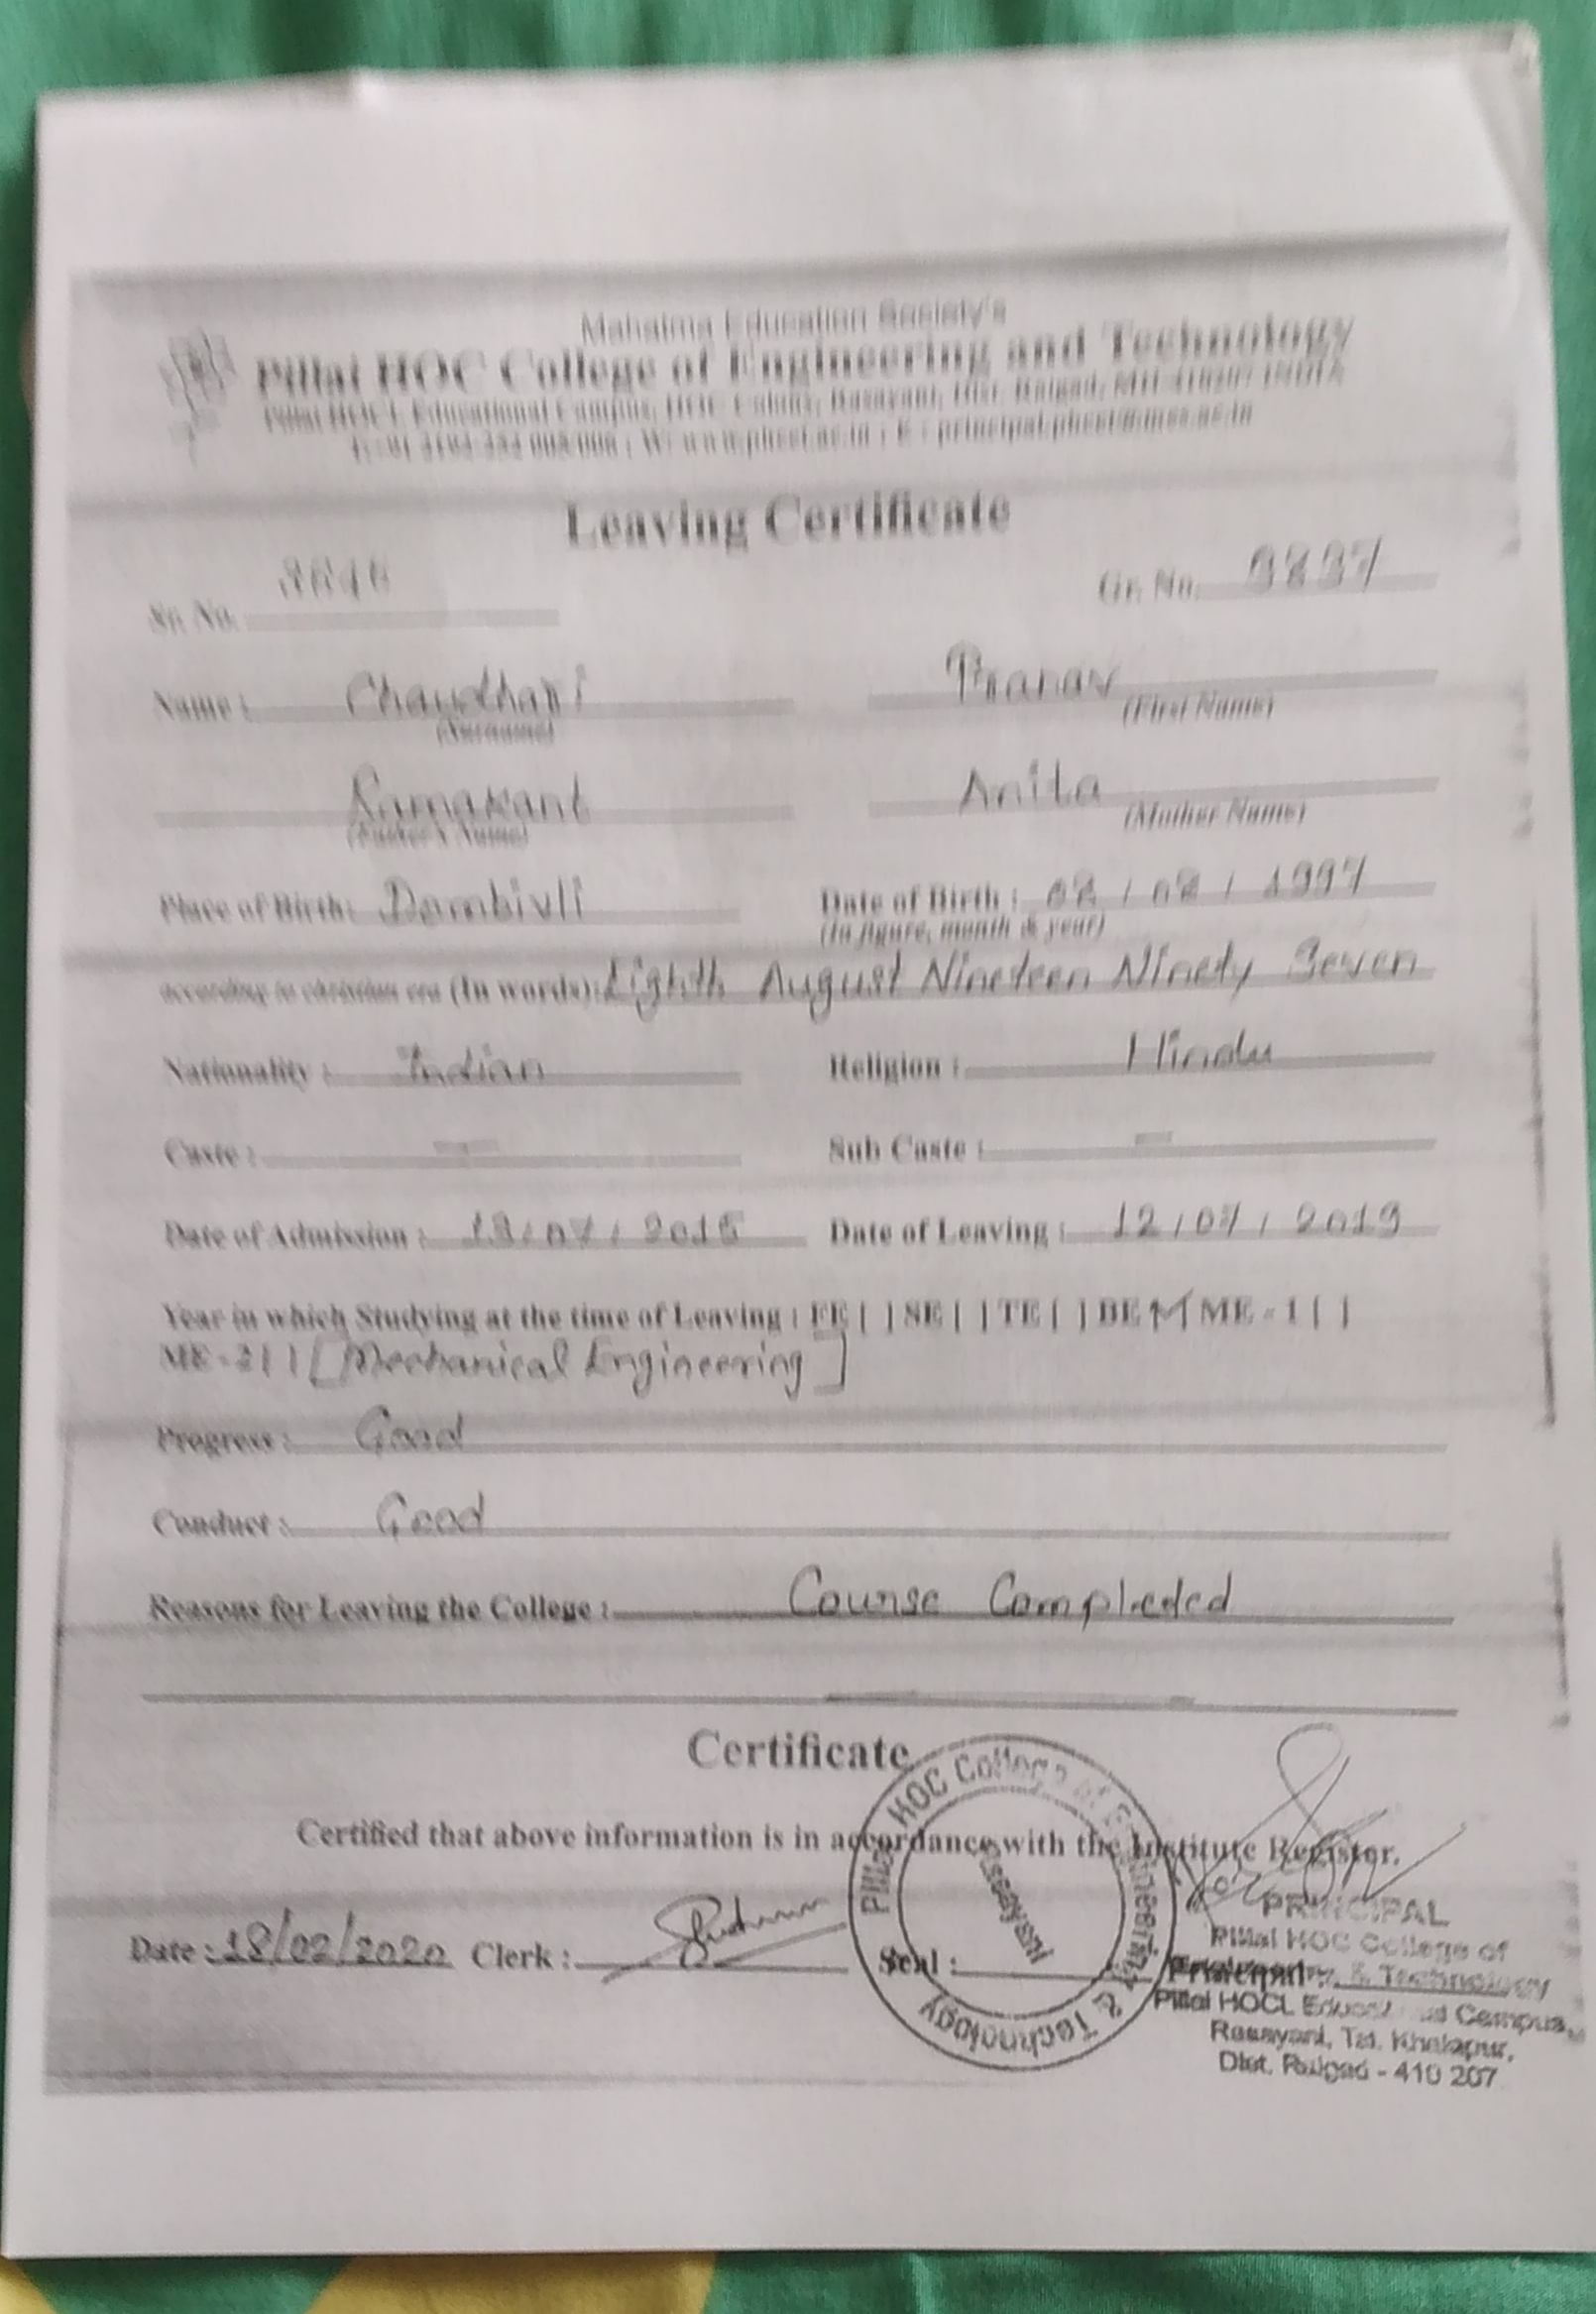 Mahatma Education Society's
Pillai HOC College of Engineering and Technology
Pillai HOCL Educational Campus, HOC Colony, Rasayani, Dist. Raigad, MH 410207 INDIA
Leaving Certificate
Sr. No. Gr. No.
Name : Chaudhari Pranav
(Surname) (First Name)
Ramakant Anita
(Father's Name) (Mother Name)
Place of Birth: Dombivli Date of Birth : 08 / 08 / 1997
(In figure, month & year)
according to christian era (In words): Eighth August Nineteen Ninety Seven
Nationality : Indian Religion : Hindu
Caste : — Sub Caste : —
Date of Admission : / 07 / 2015 Date of Leaving : 12 / 07 / 2019
Year in which Studying at the time of Leaving : FE [ ] SE [ ] TE [ ] BE [✓] ME - 1 [ ]
ME - 2 [ ] [Mechanical Engineering]
Progress : Good
Conduct : Good
Reasons for Leaving the College : Course Completed
Certificate
Certified that above information is in accordance with the Institute Register.
Date : 18/02/2020 Clerk : Seal : Principal :
Pillai HOC College of Engineering & Technology
Rasayani
PRINCIPAL
Pillai HOC College of
Engineering & Technology
Pillai HOCL Educational Campus,
Rasayani, Tal. Khalapur,
Dist. Raigad - 410 207